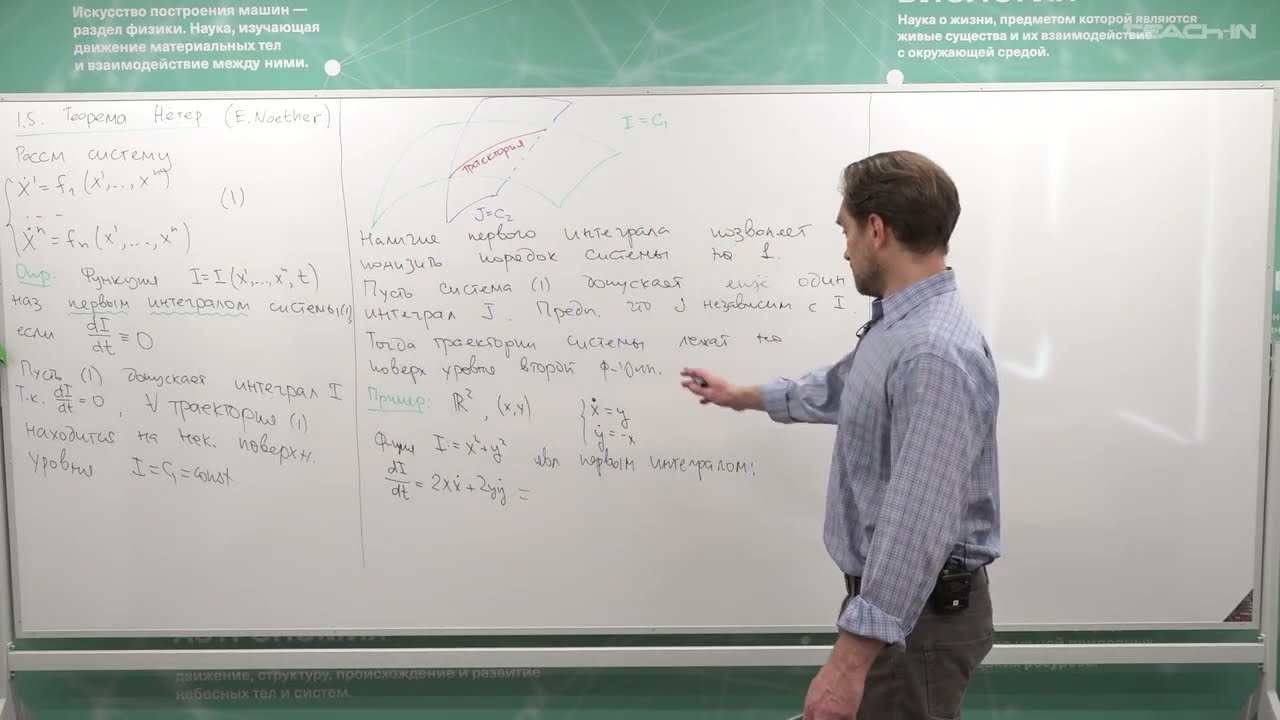 Искусство построения машин —
раздел физики. Наука, изучающая
движение материальных тел
и взаимодействие между ними.
Наука о жизни, предметом которой являются
живые существа и их взаимодействие
с окружающей средой.
TEACH-IN
1.5. Теорема Нётер (E. Noether)
Рассм систему
ẋ¹ = f₁(x¹,..., xⁿ)
...
ẋⁿ = fₙ(x¹,..., xⁿ)
(1)
Опр. Функция I = I(x¹,..., xⁿ, t)
наз первым интегралом системы (1)
если dI/dt ≡ 0
Пусть (1) допускает интеграл I
Т.к. dI/dt = 0, ∀ траектория (1)
находится на нек. поверхн.
уровня I = C₁ = const
I = C₁
траектория
J = C₂
Наличие первого интеграла позволяет
понизить порядок системы на 1.
Пусть система (1) допускает ещё один
интеграл J. Предп. что J независим с I.
Тогда траектории системы лежат на
поверх уровня второй ф-ции.
Пример: ℝ², (x,y) { ẋ = y
ẏ = -x
Фция I = x² + y² явл первым интегралом:
dI/dt = 2xẋ + 2yẏ =
движение, структуру, происхождение и развитие
небесных тел и систем.